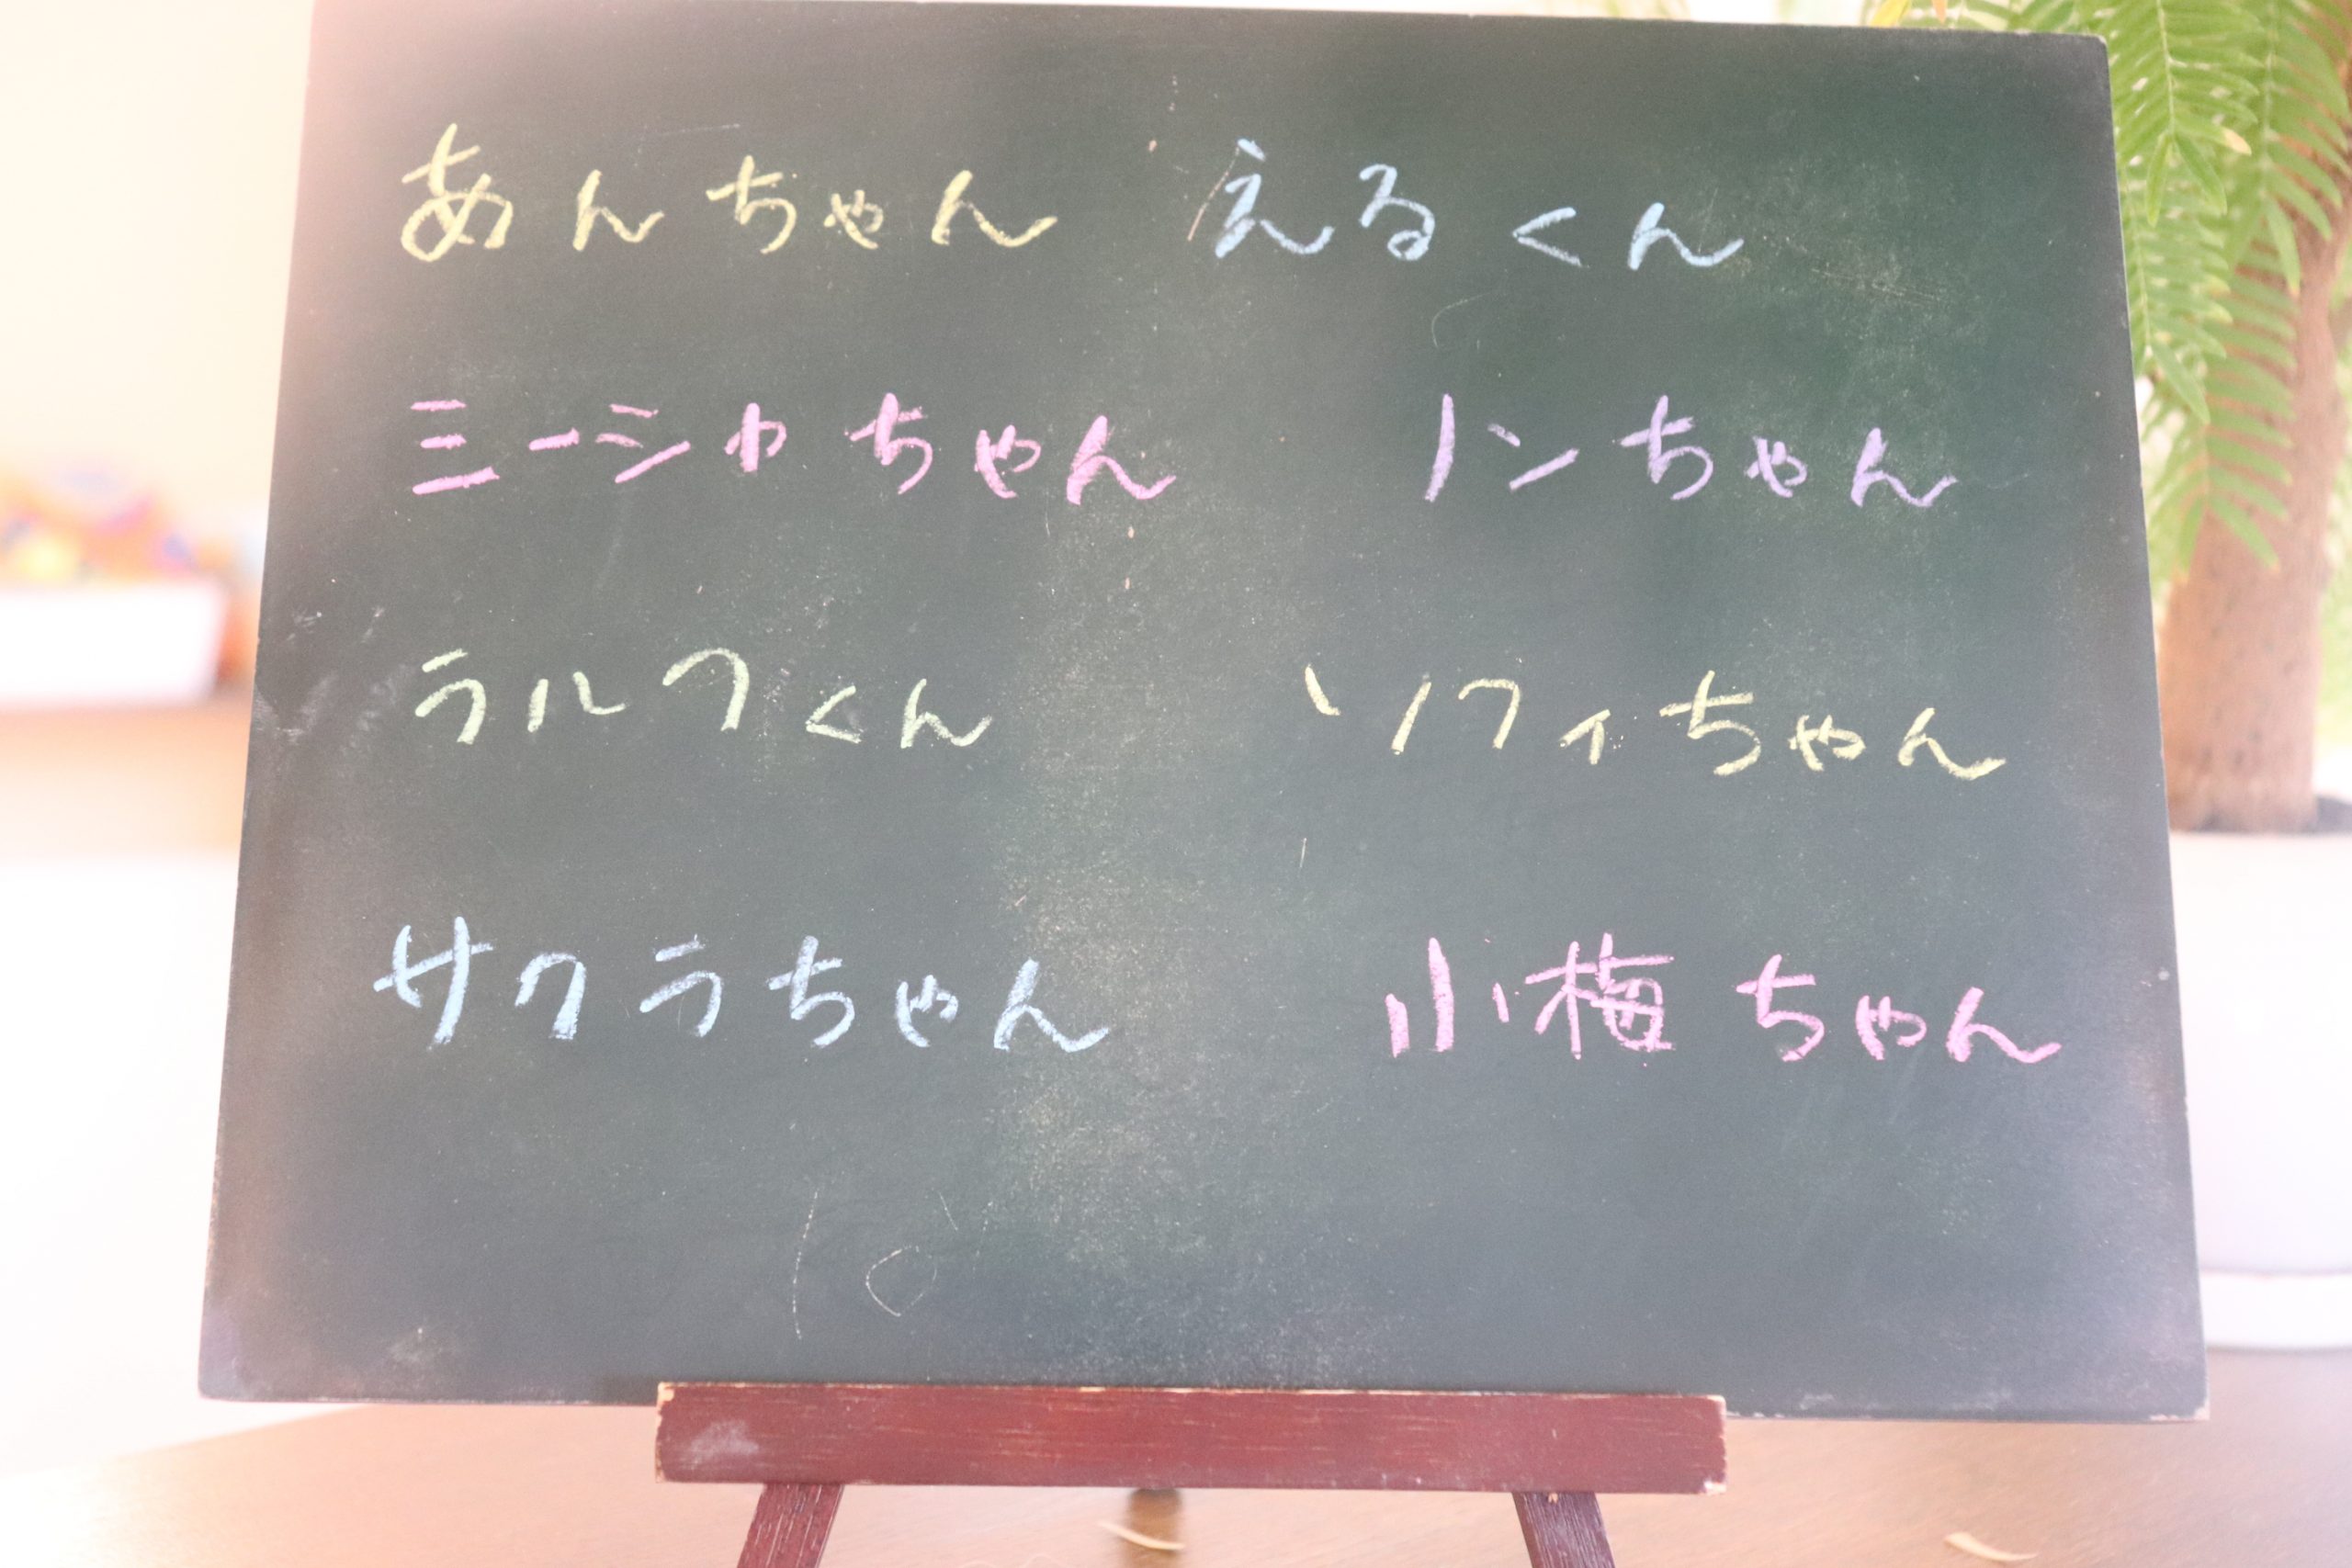 あんちゃん えるくん
ミーシャちゃん ノンちゃん
ラルフくん ソフィちゃん
サクラちゃん 小梅ちゃん